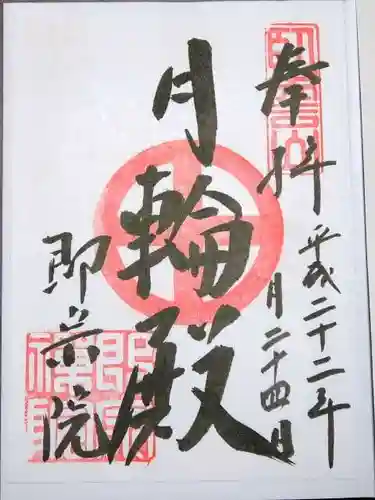 奉拝
平成二十二年
月二十四日
月輪殿
即宗院
臥雲山